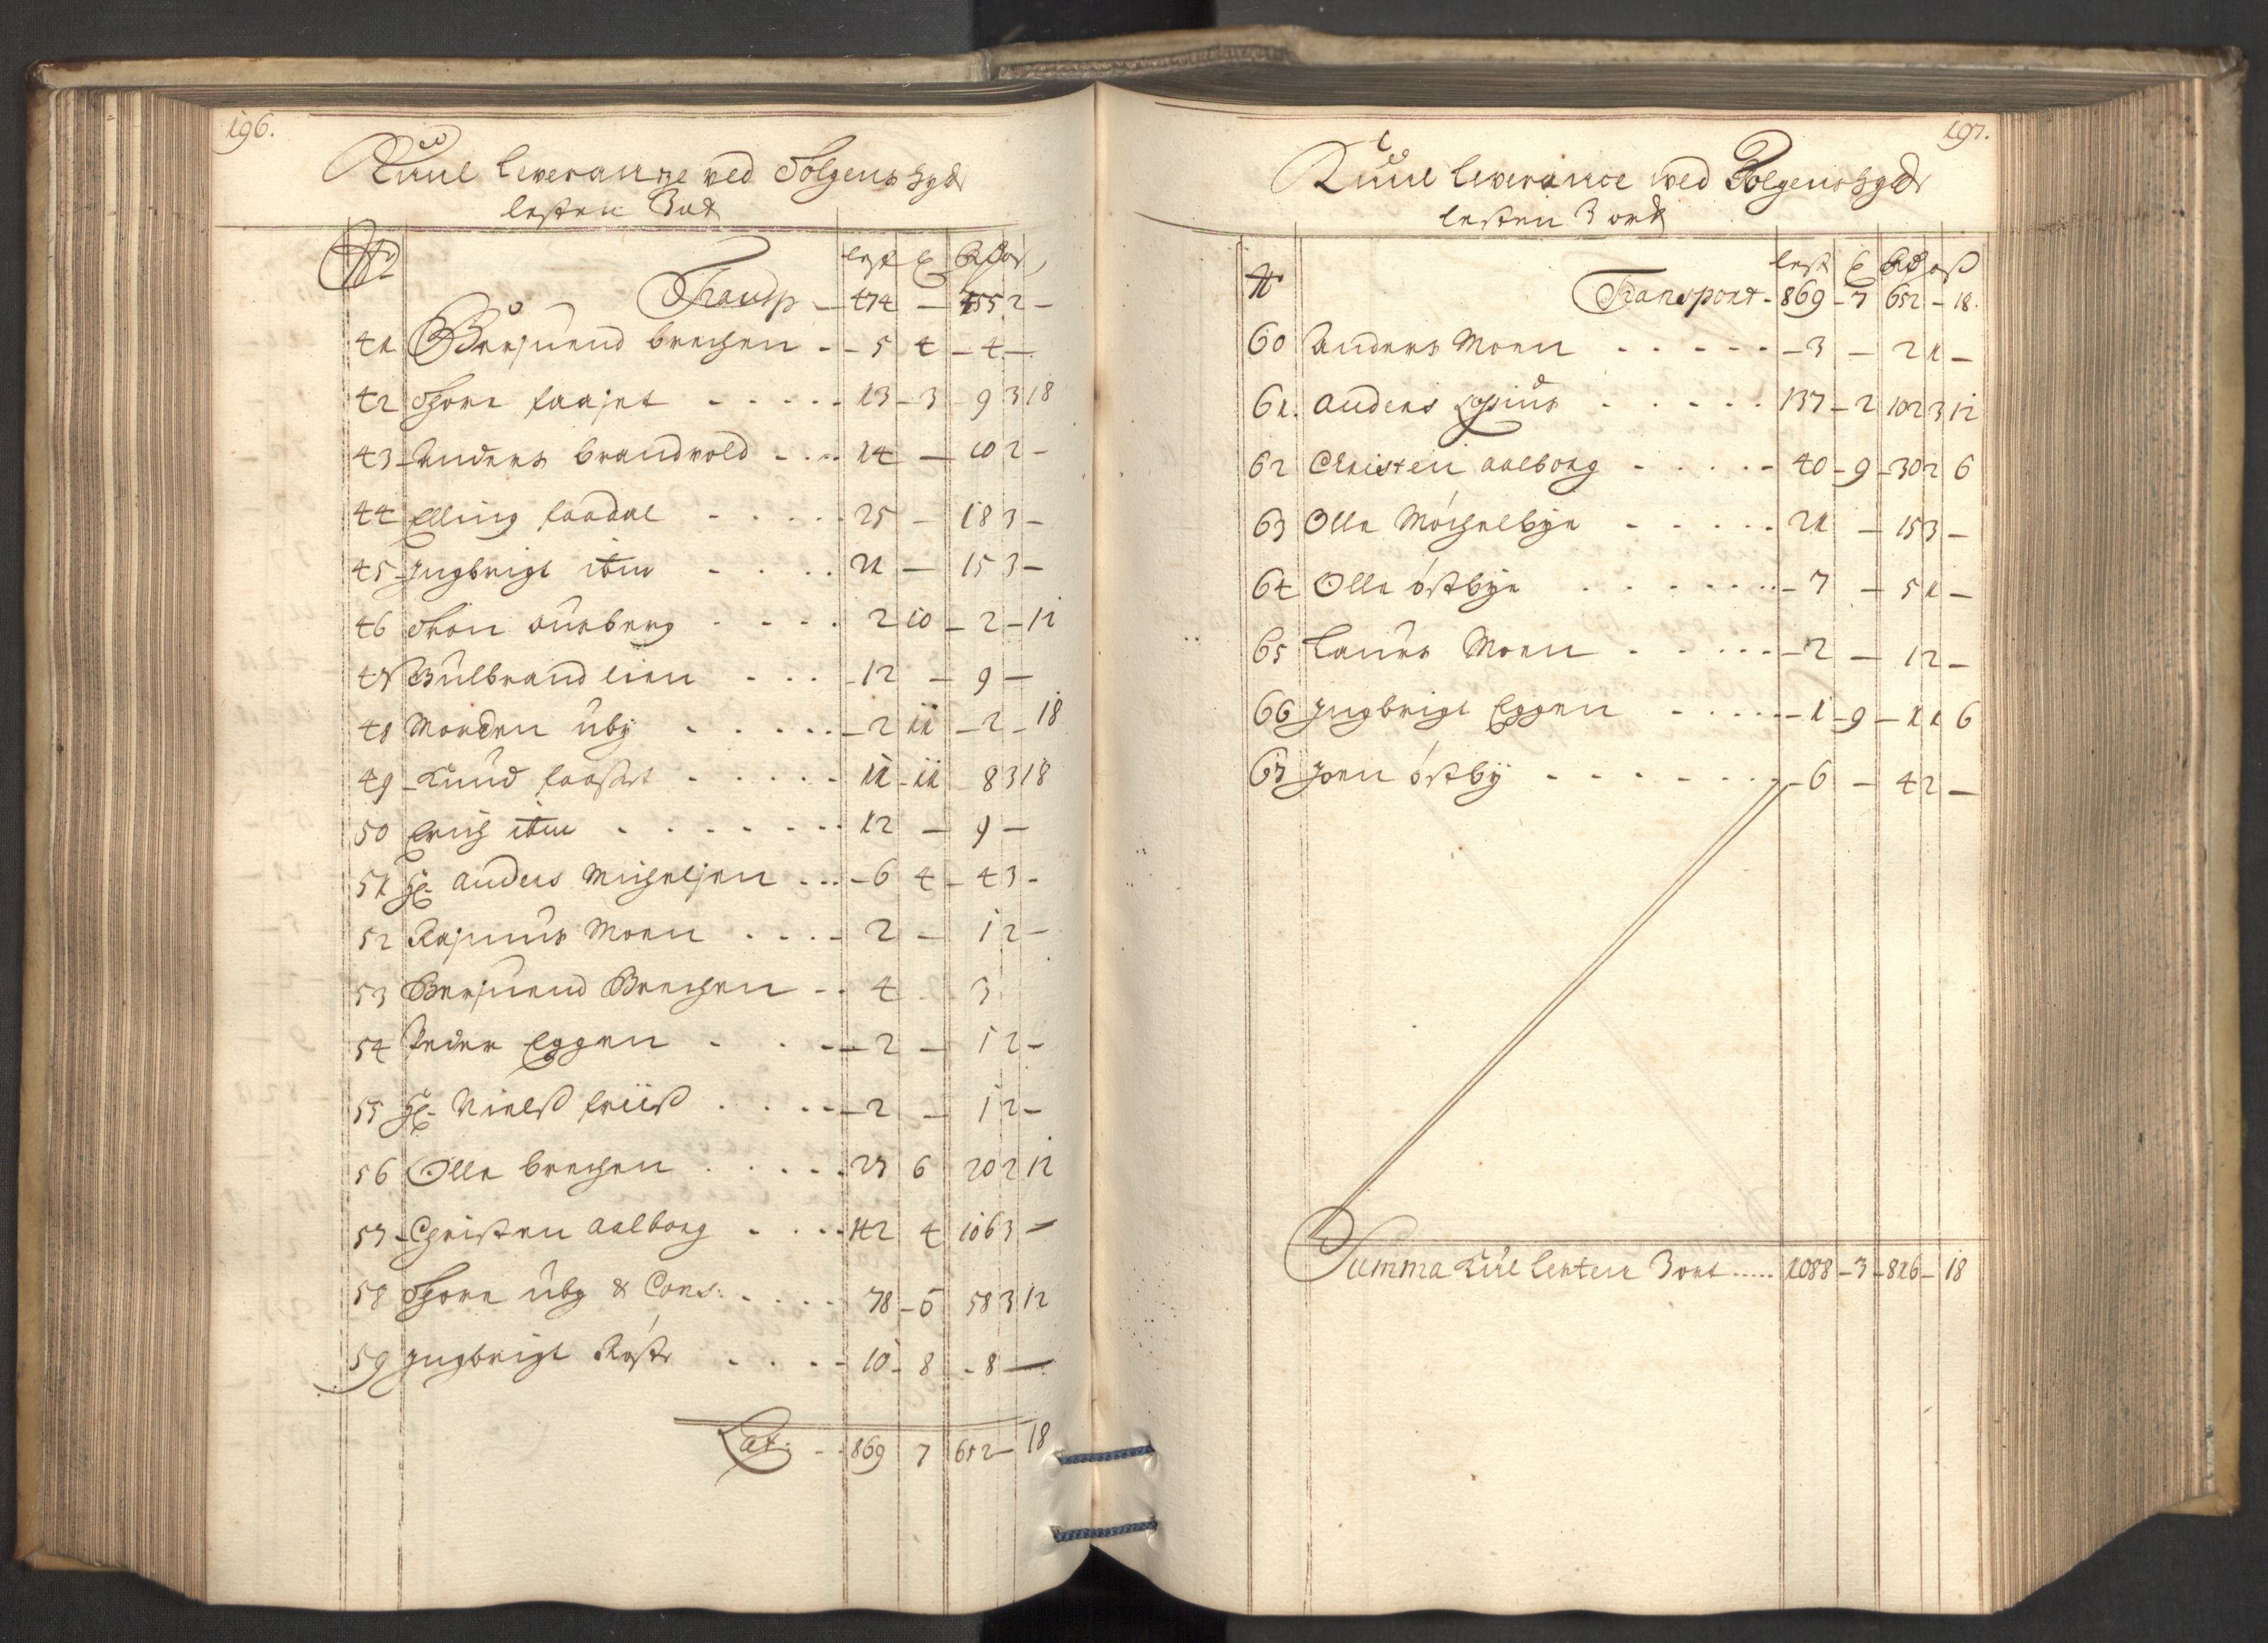 196.
Kuul leverantze ved Tolgens hytte
lesten 3 ort
No lest t Rd ort s
Transp — 474 — 355 2 —
41 Bersuend brechen - - 5 4 — 4 —
42 Thore faaset - - - - - 13 - 3 - 9 3 18
43 - Anders brandvold - - - - 14 — 10 2 -
44 Elling faadal - - - - - 25 — 18 3 -
45 - Jngbrigt itm - - - - 21 — 15 3 -
46 Thron aursberg - - - - 2 10 — 2 - 12
47 Gulbrand lien - - - - 12 — 9 —
48 Morten uby - - - - - - 2 11 — 2 - 18
49 - Knud faaset - - - - - 11 - 11 8 3 18
50 Erich itm - - - - - - - 12 — 9 —
51 Hr Anders Michelsen - - - - 6 4 — 4 3 -
52 Rasmus Moen - - - - 2 — 1 2 -
53 Bersuend Brechen - - 4 3
54 Peder Eggen - - - - 2 — 1 2 -
55 Hr. Nielss friiss - - - - - 2 — 1 2 -
56 Olle brechen - - - - - 27 6 20 2 12
57 - Christen aalborg - - - - 142 4 106 3 -
58 Thore uby & Cons: - - - - 78 - 5 58 3 12
59 Jngbrigt Røste - - - - 10 - 8 - 8 —
Lat: - - 869 7 652 - 18
197.
Kuul leverance ved Tolgens hytte
lesten 3 ort
No lest t Rd ort s
Transport - 869 - 7 652 - 18.
60 Anders Moen - - - - - - 3 — 2 1 -
61. Anders - - - - - 137 - 2 102 3 12
62 Christen aalborg - - - - - 40 - 9 - 30 2 6
63 Olle Møchelbye - - - - - 21 — 15 3 -
64 Olle østbye - - - - - - - 7 — 5 1 -
65 Laurs Moen - - - - - - 2 — 1 2 -
66 Jngbrigt Eggen - - - - - 1 - 9 - 1 1 6
67 Joen østby - - - - - - - 6 — 4 2 —
Summa Kul lesten 3 ort ..... 1088 - 3 - 816 - 18